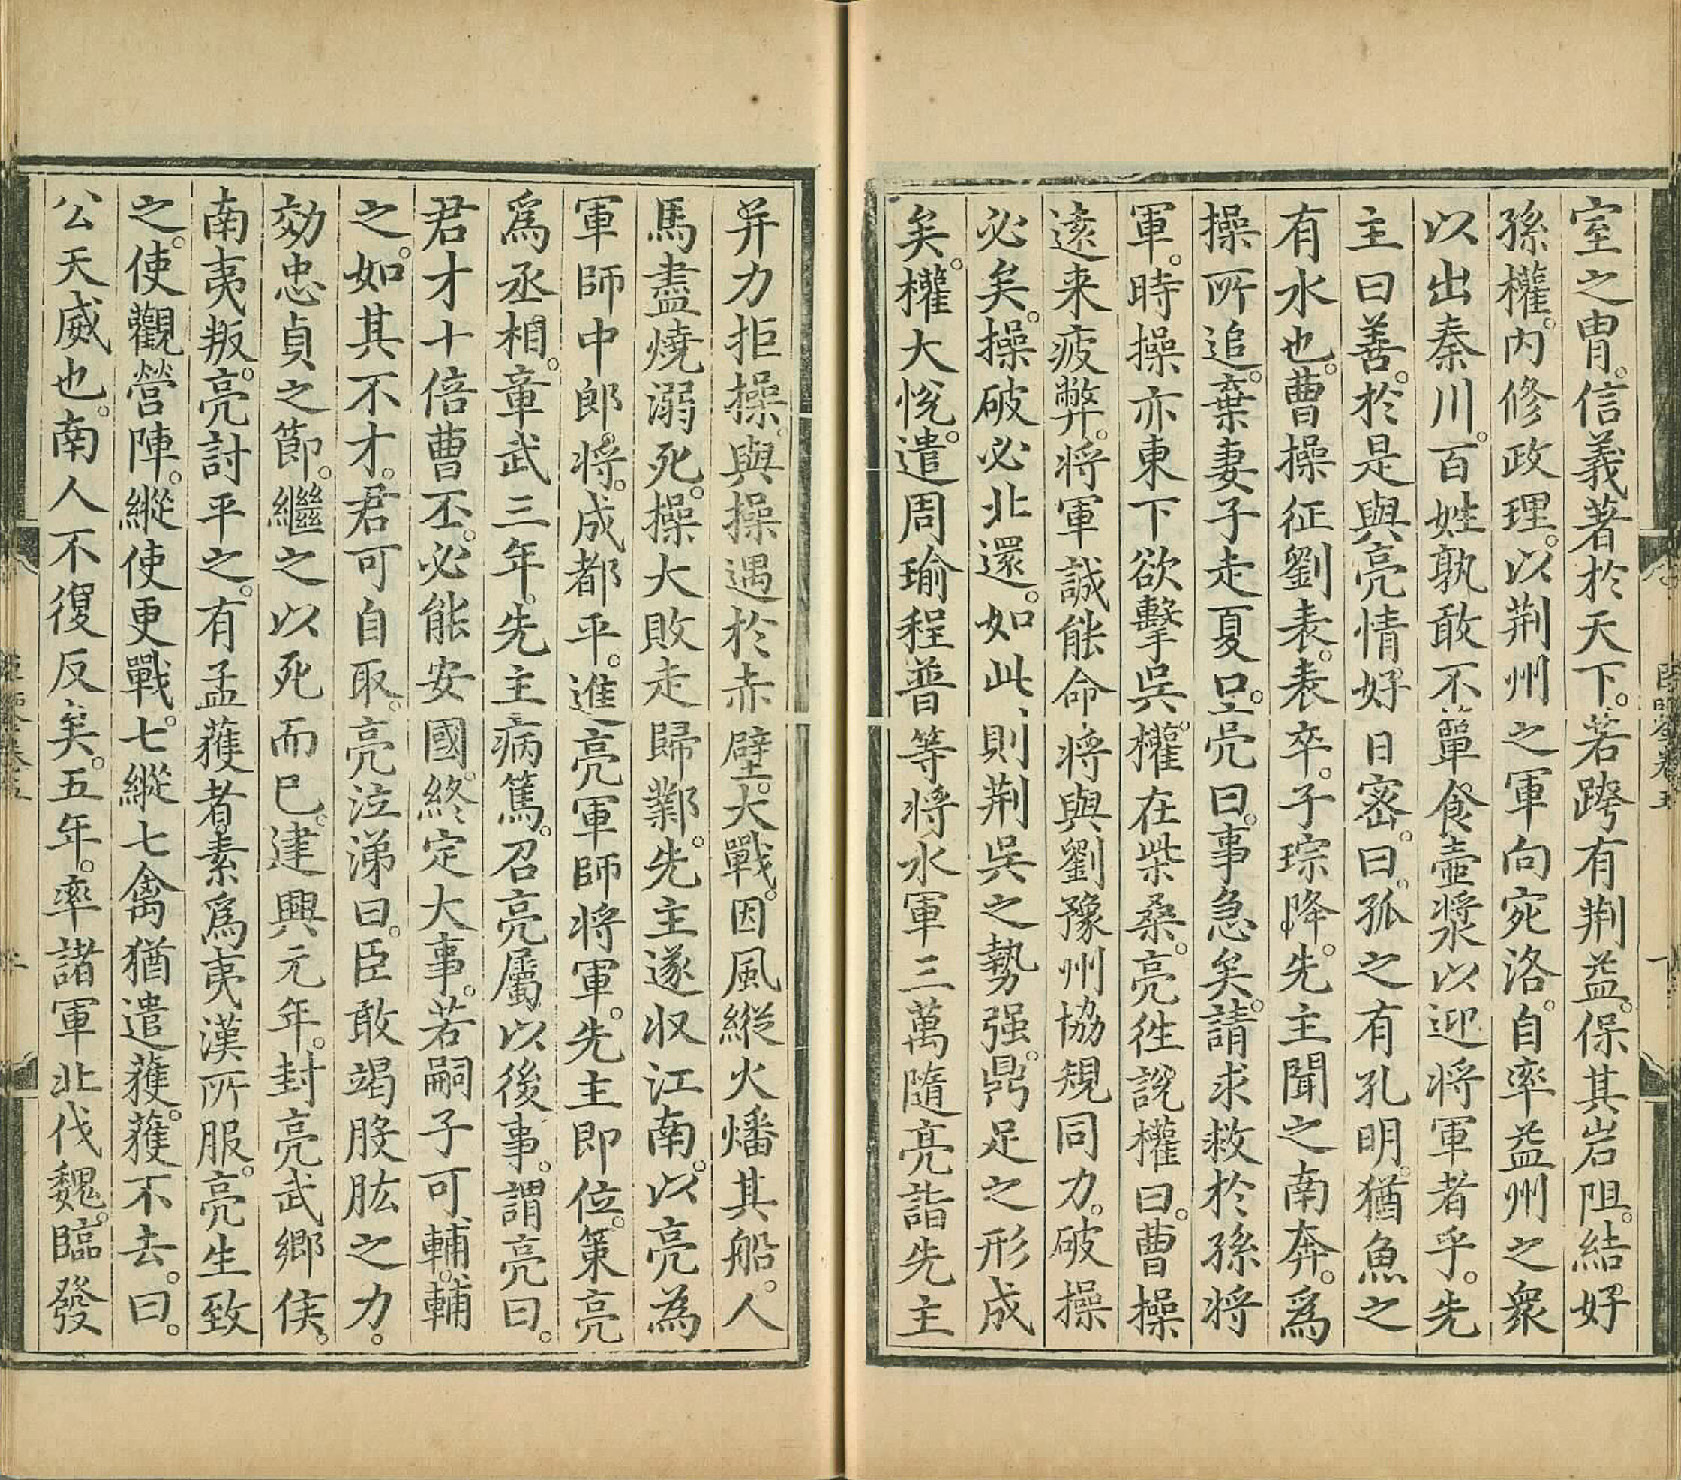 室之冑。信義著於天下。若跨有荆益。保其岩阻。結好
孫權。内修政理。以荆州之軍向宛洛。自率益州之衆
以出秦川。百姓孰敢不簞食壺漿以迎將軍者乎。先
主曰善。於是與亮情好日密。曰。孤之有孔明。猶魚之
有水也。曹操征劉表。表卒。子琮降。先主聞之南奔。爲
操所追。棄妻子走夏口。亮曰。事急矣。請求救於孫將
軍。時操亦東下欲擊吳。權在柴桑。亮徃說權曰。曹操
遠来疲弊。將軍誠能命將與劉豫州協規同力。破操
必矣。操破必北還。如此、則荆吳之勢强。鼎足之形成
矣。權大悅。遣周瑜程普等將水軍三萬隨亮詣先主
并力拒操。與操遇於赤壁。大戰。因風縱火燔其船。人
馬盡燒溺死。操大敗走歸鄴。先主遂収江南。以亮為
軍師中郎將。成都平。進亮軍師將軍。先主即位。策亮
爲丞相。章武三年。先主病篤。召亮屬以後事。謂亮曰。
君才十倍曹丕。必能安國。終定大事。若嗣子可輔。輔
之。如其不才。君可自取。亮泣涕曰。臣敢竭股肱之力。
効忠貞之節。繼之以死而已。建興元年。封亮武鄉侯。
南夷叛。亮討平之。有孟獲者。素爲夷漢所服。亮生致
之。使觀營陣。縱使更戰。七縱七禽。猶遣獲。獲不去。曰。
公天威也。南人不復反矣。五年。率諸軍北伐魏。臨發